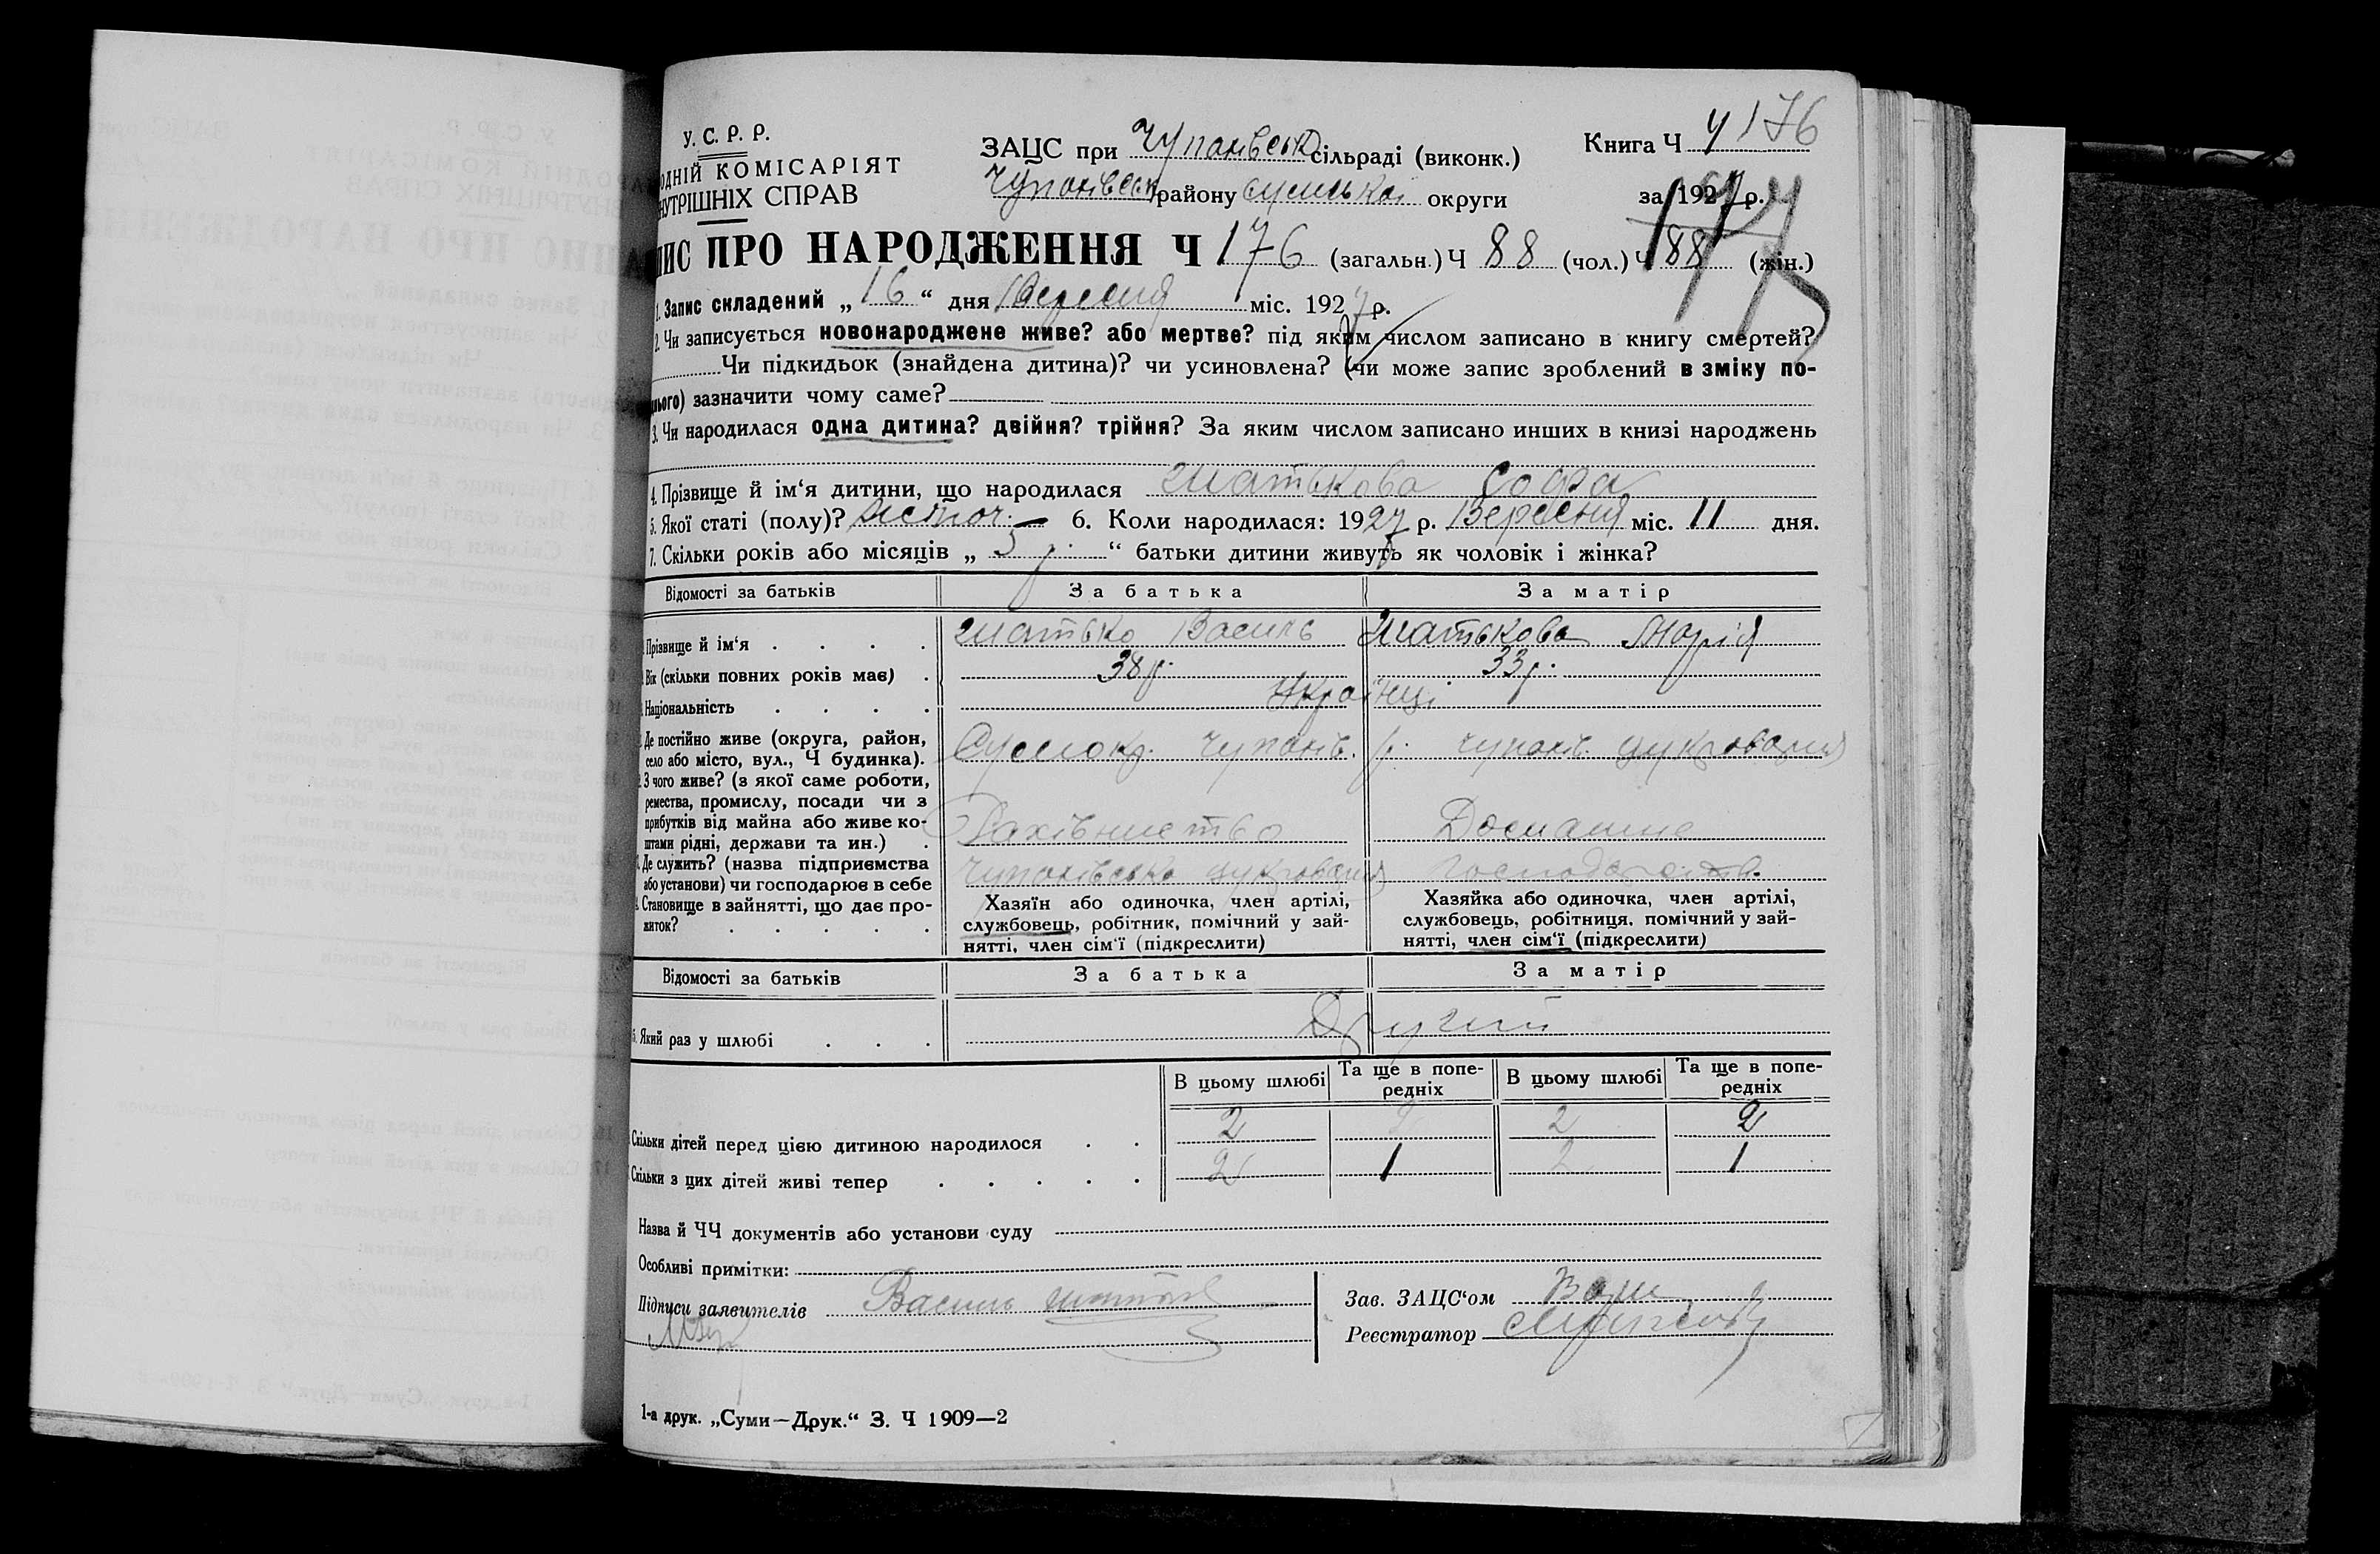 У. С. Р. Р.
ОДНІЙ КОМІСАРІЯТ
НУТРІШНІХ СПРАВ
ЗАЦС при Чупахівськ сільраді (виконк.)
Чупахівськ району Сумської округи
Книга Ч 4 176
за 1927 р.
177
ПИС ПРО НАРОДЖЕННЯ Ч 176 (загальн.) Ч 88 (чол.) Ч 88 (жін.)
1. Запис складений „ 16 “ дня Вересня міс. 1927 р.
2. Чи записується новонароджене живе? або мертве? під яким числом записано в книгу смертей?
Чи підкидьок (знайдена дитина)? чи усиновлена? (чи може запис зроблений в зміну по-
нього) зазначити чому саме?
3. Чи народилася одна дитина? двійня? трійня? За яким числом записано инших в книзі народжень
4. Прізвище й ім‘я дитини, що народилася Шатькова Софа
5. Якої статі (полу)? жіноч. 6. Коли народилася: 1927 р. Вересня міс. 11 дня.
7. Скільки років або місяців „ 5 р. “ батьки дитини живуть як чоловік і жінка?
Відомості за батьків За батька За матір
Прізвище й ім‘я Шатько Василь Шатькова Марія
Вік (скільки повних років має) 38 р. 33 р.
Національність Українці
Де постійно живе (округа, район,
село або місто, вул., Ч будинка). Сум. окр. Чупахів. р. Чупахів. цукроварня
З чого живе? (з якої саме роботи,
ремества, промислу, посади чи з
прибутків від майна або живе ко-
штами рідні, держави та ин.) Рахівництво Домашнє
Де служить? (назва підприємства
або установи) чи господарює в себе Чупахівська цукроварня господарств.
Становище в зайнятті, що дає про-
житок?
Хазяїн або одиночка, член артілі,
службовець, робітник, помічний у зай-
нятті, член сім‘ї (підкреслити)
Хазяйка або одиночка, член артілі,
службовець, робітниця, помічний у зай-
нятті, член сім‘ї (підкреслити)
Відомості за батьків За батька За матір
Який раз у шлюбі Другий
В цьому шлюбі Та ще в попе-
редніх В цьому шлюбі Та ще в попе-
редніх
Скільки дітей перед цією дитиною народилося 2 2 2 2
Скільки з цих дітей живі тепер 2 1 2 1
Назва й ЧЧ документів або установи суду
Особливі примітки:
Підписи заявителів Василь Шатько
Зав. ЗАЦС‘ом
Реєстратор
1-а друк. „Суми—Друк.“ З. Ч 1909—2